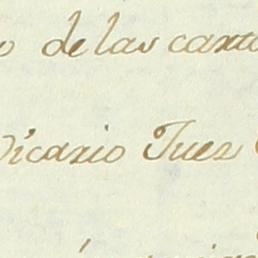 o de las carta
Vicario Juez